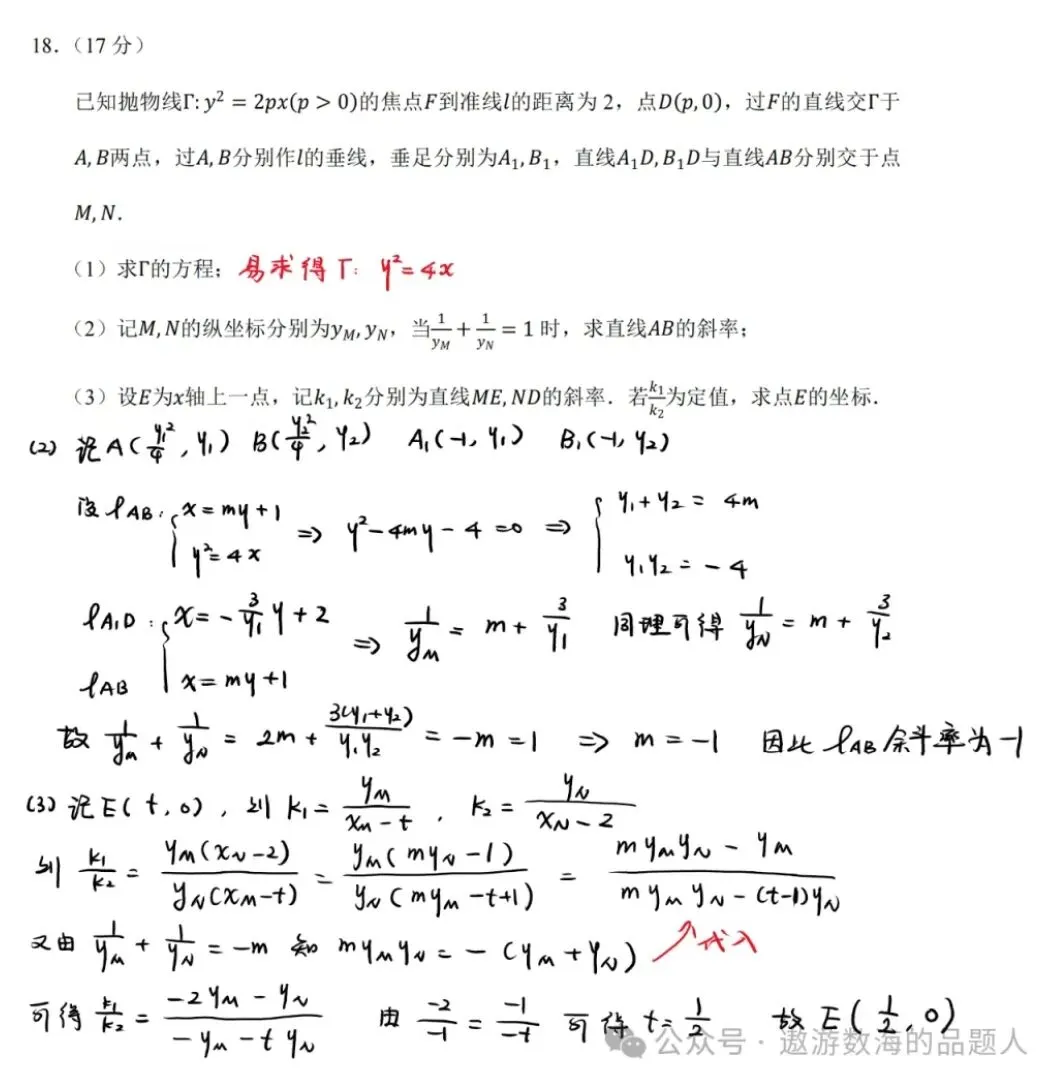 18.（17 分）
已知抛物线Γ: y² = 2px(p > 0)的焦点F到准线l的距离为 2，点D(p, 0)，过F的直线交Γ于
A, B两点，过A, B分别作l的垂线，垂足分别为A₁, B₁，直线A₁D, B₁D与直线AB分别交于点
M, N.
（1）求Γ的方程；易求得 Γ: y² = 4x
（2）记M, N的纵坐标分别为y_M, y_N，当1/y_M + 1/y_N = 1 时，求直线AB的斜率；
（3）设E为x轴上一点，记k₁, k₂分别为直线ME, ND的斜率．若k₁/k₂为定值，求点E的坐标．
(2) 记 A(y₁²/4, y₁) B(y₂²/4, y₂) A₁(-1, y₁) B₁(-1, y₂)
设 l_AB: { x = my + 1, y² = 4x ⇒ y² - 4my - 4 = 0 ⇒ { y₁ + y₂ = 4m, y₁y₂ = -4
l_A₁D: x = -3/y₁ y + 2, l_AB x = my + 1 ⇒ 1/y_M = m + 3/y₁ 同理可得 1/y_N = m + 3/y₂
故 1/y_M + 1/y_N = 2m + 3(y₁+y₂)/y₁y₂ = -m = 1 ⇒ m = -1 因此 l_AB 斜率为 -1
(3) 记 E(t, 0), 则 k₁ = y_M/(x_M - t), k₂ = y_N/(x_N - 2)
则 k₁/k₂ = y_M(x_N - 2)/y_N(x_M - t) = y_M(my_N - 1)/y_N(my_M - t + 1) = (my_My_N - y_M)/(my_My_N - (t-1)y_N)
又由 1/y_M + 1/y_N = -m 知 my_My_N = -(y_M + y_N) 代入
可得 k₁/k₂ = (-2y_M - y_N)/(-y_M - ty_N) 由 -2/-1 = -1/-t 可得 t = 1/2 故 E(1/2, 0)
公众号·遨游数海的品题人